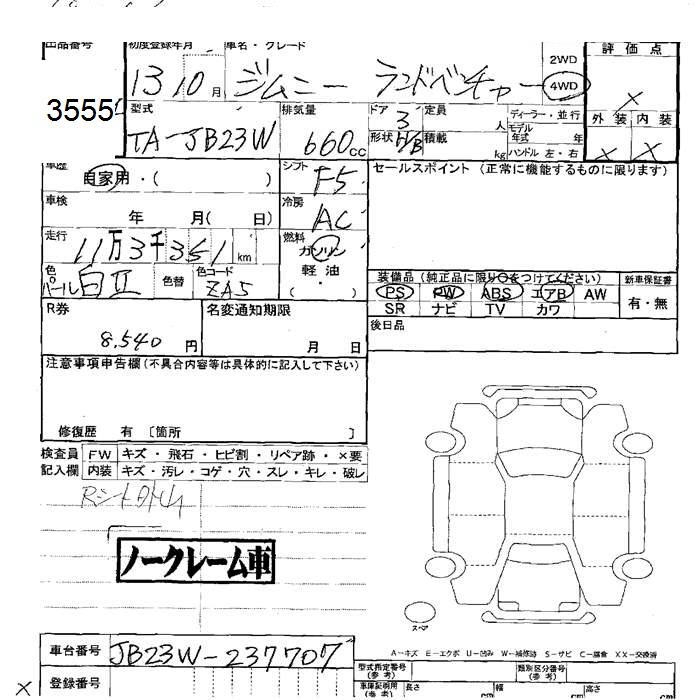 出品番号 初度登録年月 車名・グレード 2WD 評価点
13 10月 ジムニー ランドベンチャー 4WD ×
3555
型式 排気量 ドア 3 定員 人 ディーラー・並行 外装 内装
TA-JB23W 660cc 形状 H/B 積載 kg モデル年式 年 × ×
ハンドル 左・右
車歴 自家用・( ) シフト F5 セールスポイント (正常に機能するものに限ります)
車検 年 月( 日) 冷房 AC
走行 11万3千351km 燃料 ガソリン
軽油
( )
色 パール白II 色替 色コード ZA5
装備品 (純正品に限り○をつけてください) 新車保証書
PS PW ABS エアB AW 有・無
SR ナビ TV カワ
R券 8,540円 名変通知期限 月 日 後日品
注意事項申告欄(不具合内容等は具体的に記入して下さい)
修復歴 有 〔箇所 〕
検査員 FW キズ・飛石・ヒビ割・リペア跡・×要
記入欄 内装 キズ・汚レ・コゲ・穴・スレ・キレ・破レ
ノークレーム車
スペア
A-キズ E-エクボ U-凹み W-補修跡 S-サビ C-腐食 XX-交換済
車台番号 JB23W-237707
型式指定番号(参考) 類別区分番号(参考)
× 登録番号
車庫証明用(参考) 長さ cm 幅 cm 高さ cm